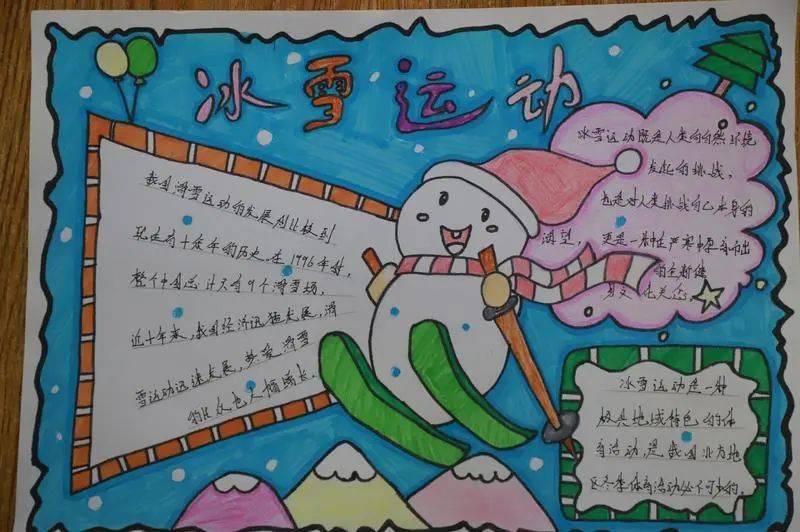 冰雪运动
我国滑雪运动的发展从比较到
现在有十余年的历史。在1996年时,
整个中国总计只有9个滑雪场,
近十年来,我国经济迅猛发展,滑
雪运动迅速发展,热爱滑雪
的比众也大幅增长.
冰雪运动既是人类向自然环境
发起的挑战,
也是对人类挑战自己本身的
渴望,更是一种在严寒中
冰雪运动是一种
极具地域特色的体
育活动,是我国北方地
区冬季体育活动必不可少的.